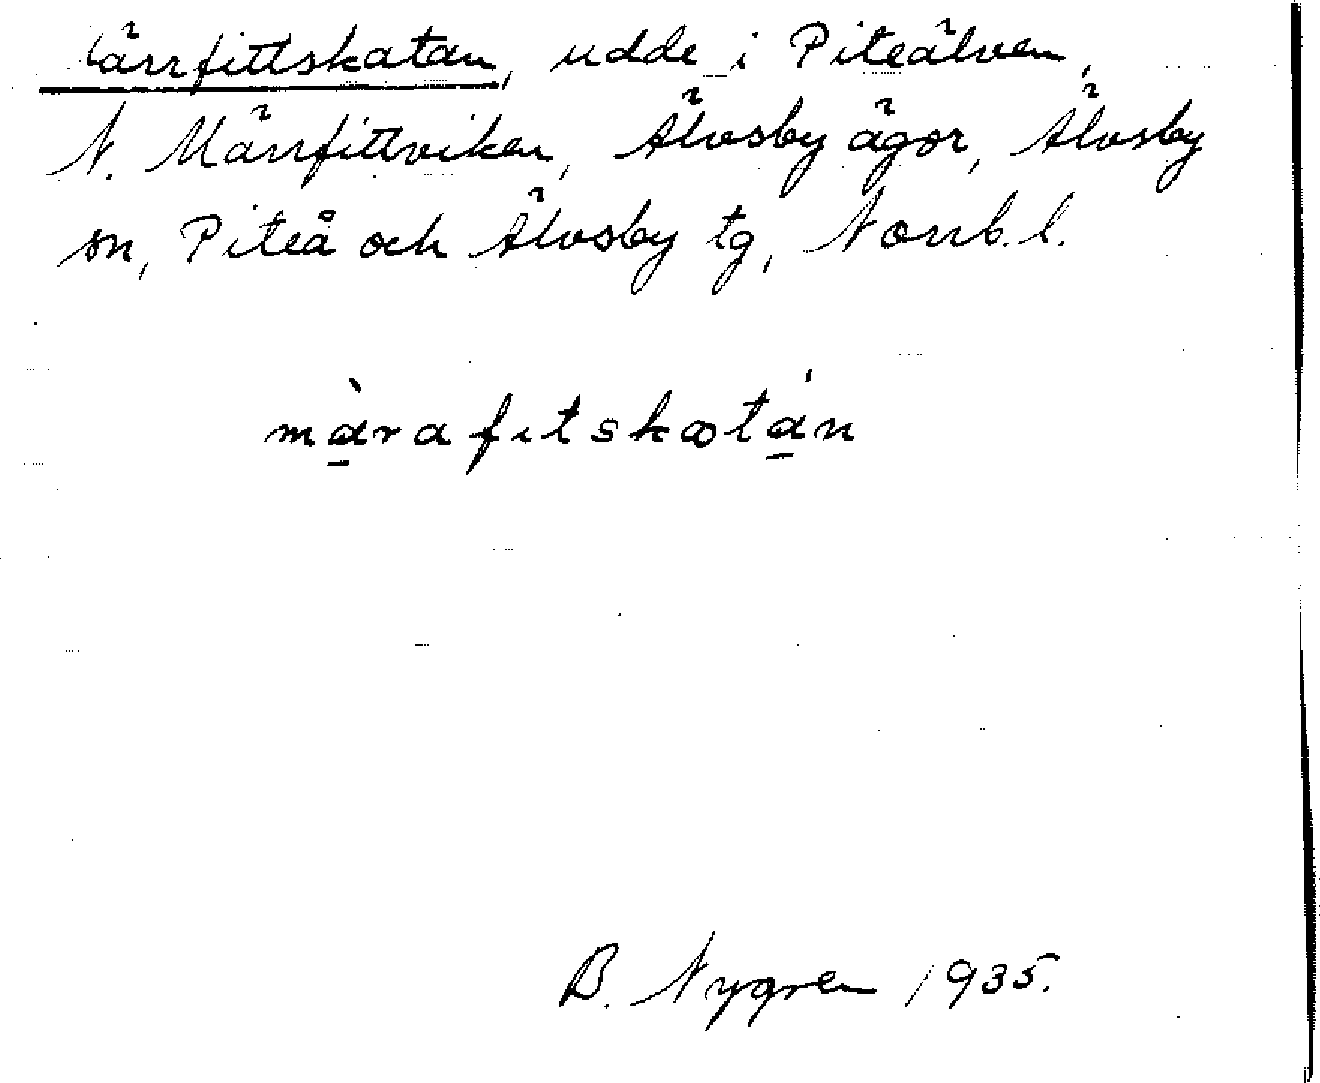 Märrfittskatan, udde i Piteälven,
N. Märrfittviken, Älvsby ägor, Älvsby
sn, Piteå och Älvsby tg, Norrb.l.
màrafitskatán
B. Nygren 1935.